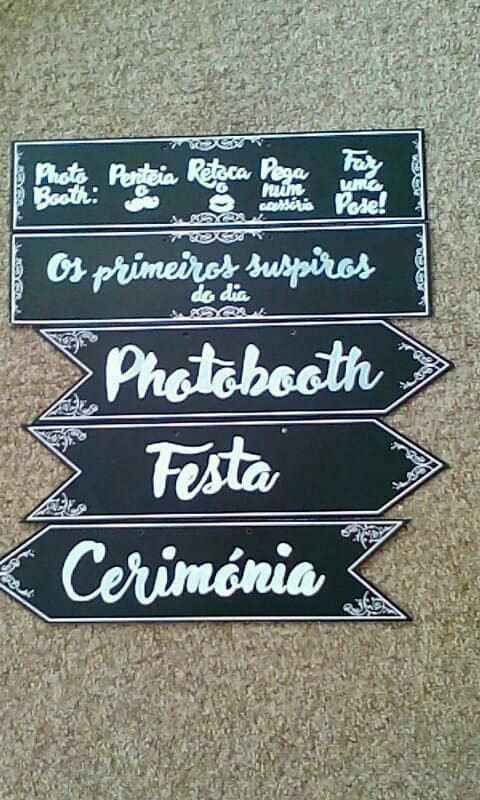 Photo Penteia Retoca Pega Faz
Booth: o o num uma
acessório Pose!
Os primeiros suspiros
do dia
Photobooth
Festa
Cerimónia